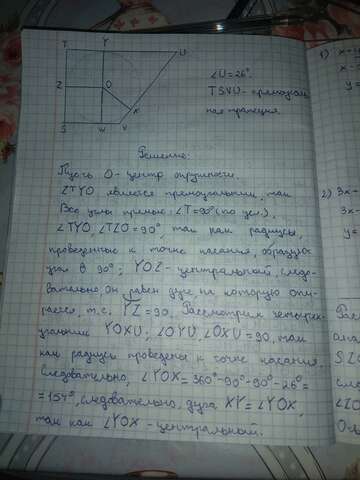 T Y U
Z O
X
S W V
∠U=26°.
TSVU - прямоуголь
ная трапеция
Решение:
Пусть O - центр окружности.
∠TYO является прямоугольным, так
Все углы прямые: ∠T=90° (по усл.),
∠TYO, ∠TZO=90°, так как радиусы,
проведённые к точке касания, образую
угол в 90°; YOZ - центральный, следо-
вательно, он равен дуге, на которую опи-
рается, т.е. YZ=90. Рассмотрим четырёх-
угольник YOXU; ∠OYU, ∠OXU=90, так
как радиусы проведены к точке касания.
Следовательно, ∠YOX=360°-90°-90°-26°=
=154°, следовательно, дуга XY=∠YOX,
так как ∠YOX - центральный.
1)
2) 3x-
3x-
y=